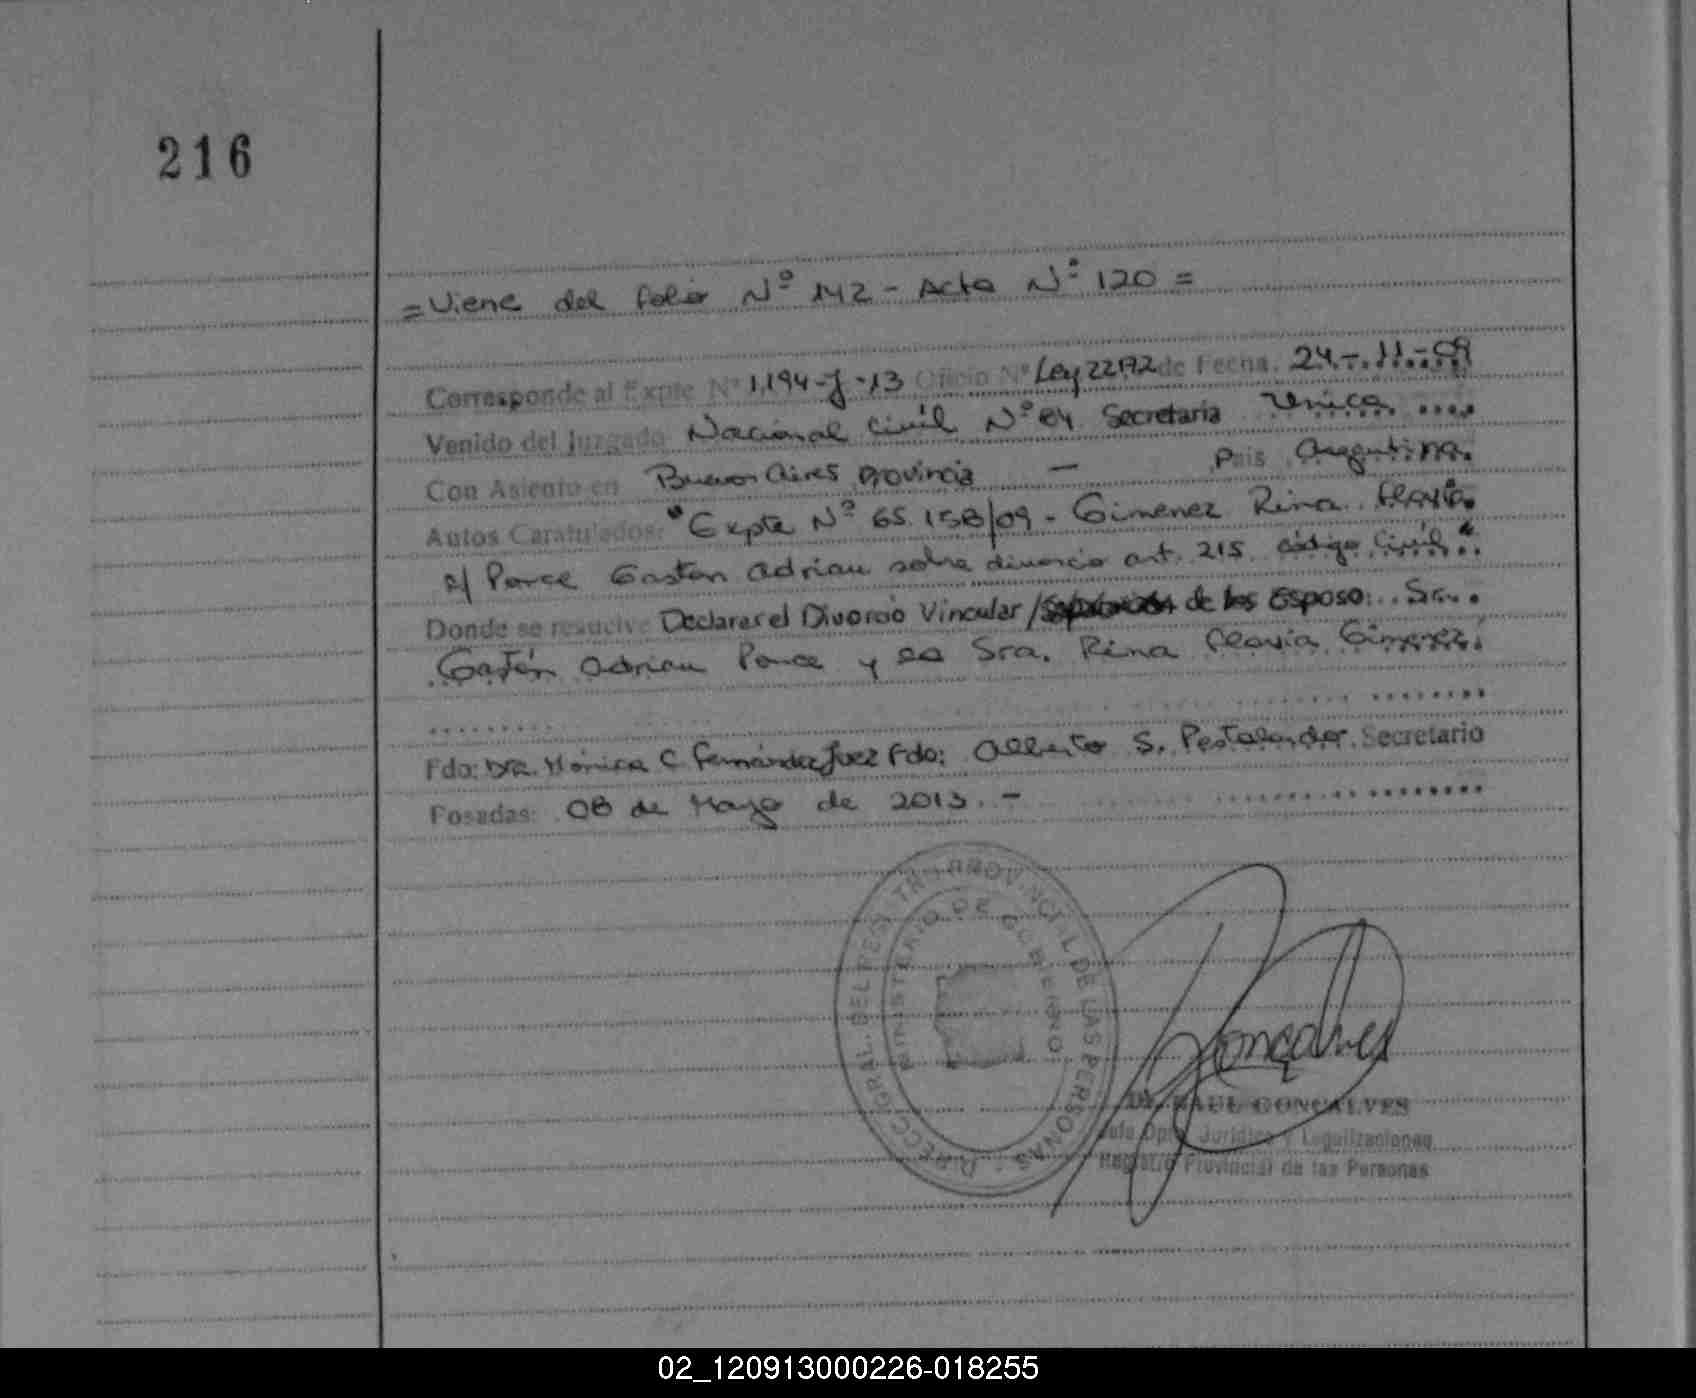 216
= Viene del folio Nº 142 - Acta Nº 120 =
Corresponde al Expte Nº 1.194-J-13 Oficio Nº Ley 22172 de Fecha. 24-.11.-09
Venido del Juzgado Nacional Civil Nº 84 Secretaria Unica ....
Con Asiento en Buenos Aires provincia - Pais Argentina.
Autos Caratulados: "Expte Nº 65.158/09 - Gimenez Rina Flavia
c/ Ponce Gaston Adrian sobre divorcio art. 215 código Civil"..
Donde se resuelve Declarar el Divorcio Vincular / de los Esposo: Sr..
Gastón Adrian Ponce y la Sra. Rina Flavia Gimenez.
Fdo: Dra. Mónica C. Fernández Juez Fdo: Alberto S. Pestalardo. Secretario
Posadas: 08 de Mayo de 2013. -
DIRECC. GRAL. DEL REGISTRO PROVINCIAL DE LAS PERSONAS
MINISTERIO DE GOBIERNO
Gonçalves
Dr. RAUL GONCALVES
Jefe Dpto. Jurídico y Legalizaciones
Registro Provincial de las Personas
02_120913000226-018255